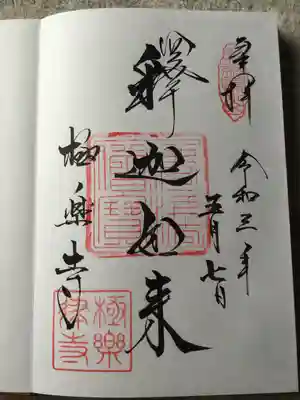 奉拝
令和三年
五月七日
釋迦如来
極楽寺
極樂律寺